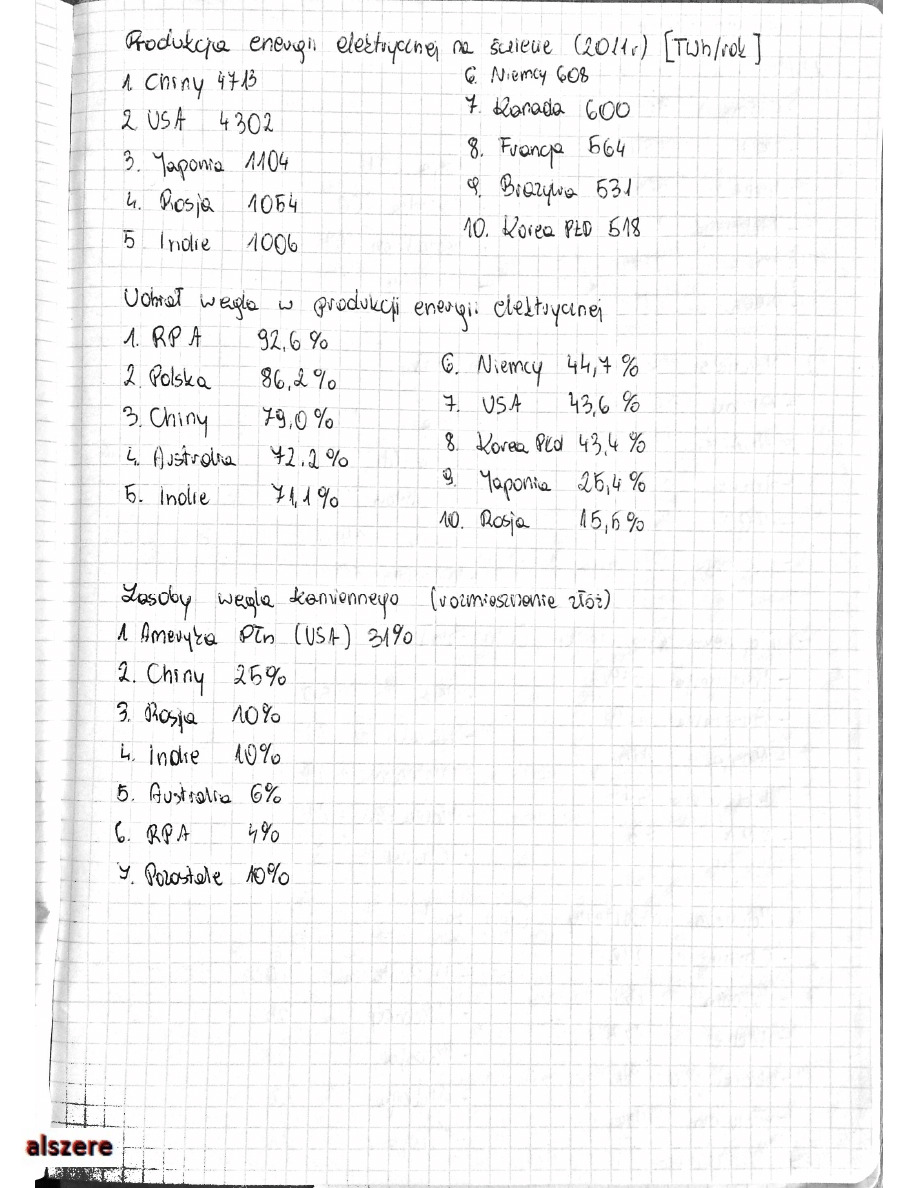 Produkcja energii elektrycznej na świecie (2011r) [TWh/rok]
1. Chiny 4713
2. USA 4302
3. Japonia 1104
4. Rosja 1054
5 Indie 1006
6. Niemcy 608
7. Kanada 600
8. Francja 564
9. Brazylia 531
10. Korea PŁD 518
Udział węgla w produkcji energii elektrycznej
1. RPA 92,6%
2. Polska 86,2%
3. Chiny 79,0%
4. Australia 72,2%
5. Indie 71,1%
6. Niemcy 44,7%
7. USA 43,6%
8. Korea Płd 43,4%
9. Japonia 25,4%
10. Rosja 15,5%
Zasoby węgla kamiennego (rozmieszczenie złóż)
1 Ameryka Płn (USA) 31%
2. Chiny 25%
3. Rosja 10%
4. Indie 10%
5. Australia 6%
6. RPA 4%
7. Pozostałe 10%
alszere